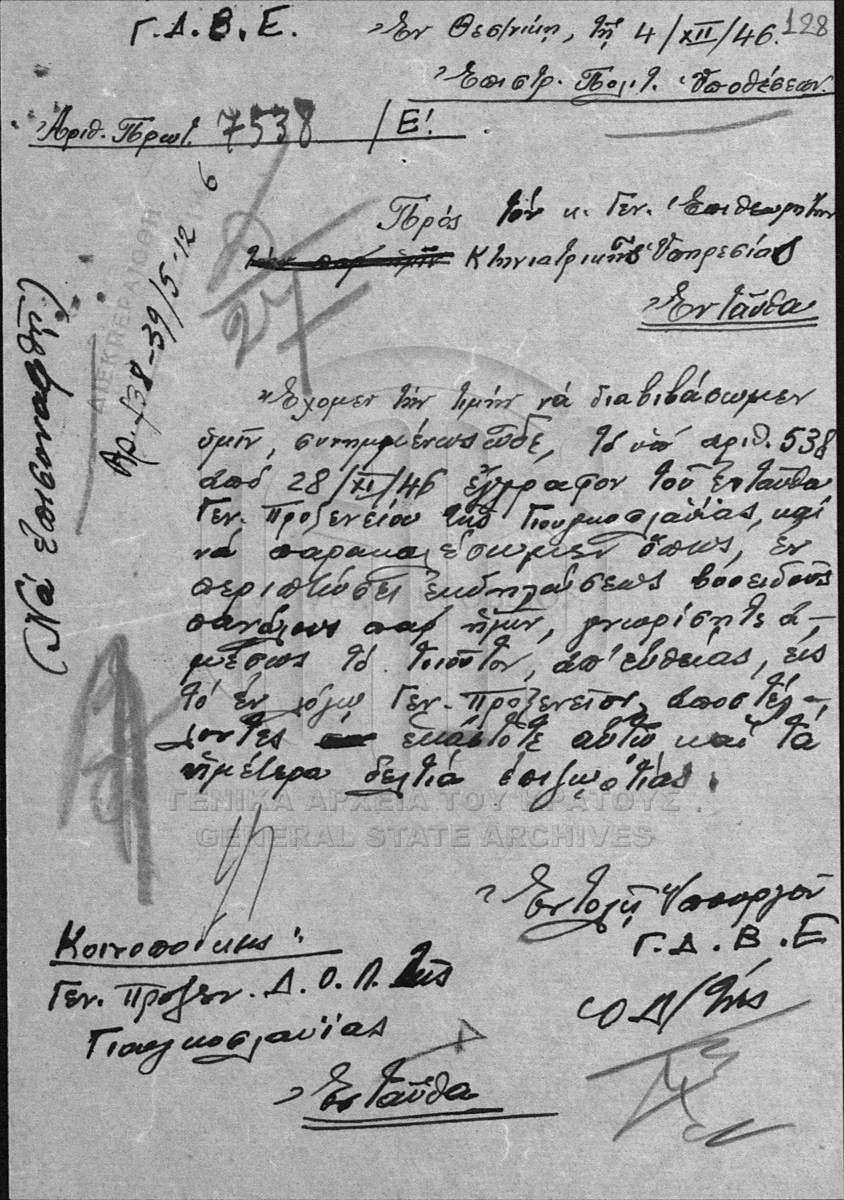 128
Γ.Δ.Β.Ε.
Ἐν Θεσ/νίκῃ, τῇ 4/XII/46.
Ἐπιστρ. Πολιτ. Ὑποθέσεων.
Ἀριθ. Πρωτ. 7538 /Ε!
Πρός τόν κ. Γεν. Ἐπιθεωρητήν
Κτηνιατρικῆς Ὑπηρεσίας
Ἐνταῦθα
ΔΙΕΚΠΕΡΑΙΩΘΗ
Ἀρ. 138-39/5-12
(Νά ἐπισυναφθῇ)
Ἔχομεν τήν τιμήν νά διαβιβάσωμεν
ὑμῖν, συνημμένως ὧδε, τό ὑπ' ἀριθ. 538
ἀπό 28/XI/46 ἔγγραφον τοῦ ἐνταῦθα
Γεν. Προξενείου τῆς Γιουγκοσλαυΐας, καί
νά παρακαλέσωμεν ὅπως, ἐν
περιπτώσει ἐκδηλώσεως βοοειδοῦς
πανώλους παρ' ἡμῖν, γνωρίσητε ἀ-
μέσως τό τοιοῦτον, ἀπ' εὐθείας, εἰς
τό ἐν λόγῳ Γεν. Προξενεῖον, ἀποστέλ-
λοντες ἑκάστοτε αὐτῷ καί τά
ἡμέτερα δελτία ἐπιζωοτίας.
ΓΕΝΙΚΑ ΑΡΧΕΙΑ ΤΟΥ ΚΡΑΤΟΥΣ
GENERAL STATE ARCHIVES
Ἐντολῇ Ὑπουργοῦ
Γ.Δ.Β.Ε
Ὁ Δ/τής
Κοινοποίησις:
Γεν. Προξεν. Δ.Ο.Λ. τῆς
Γιουγκοσλαυΐας
Ἐνταῦθα